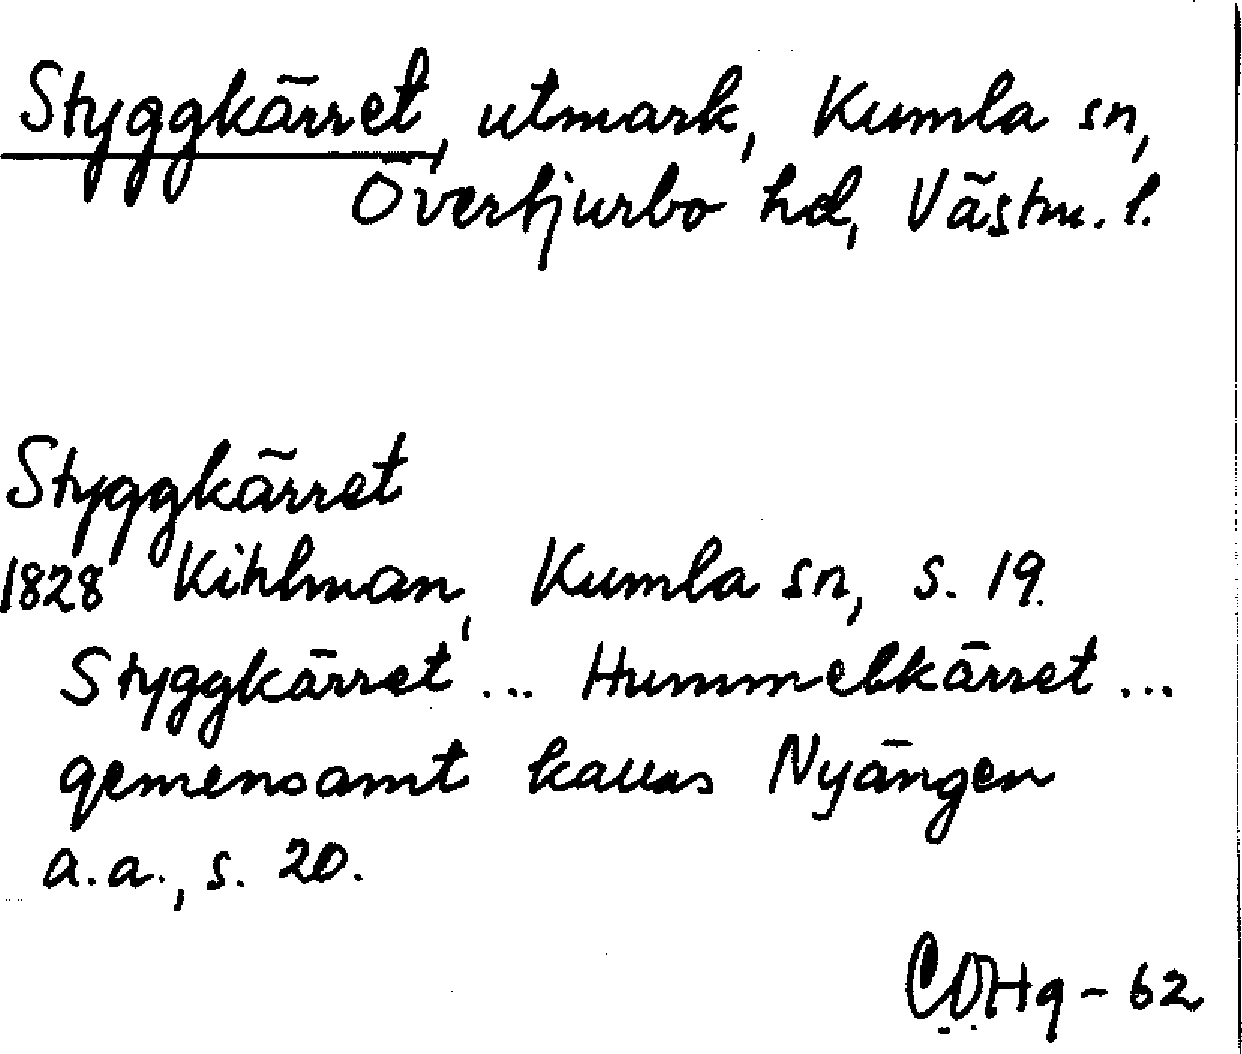 Styggkärret, utmark, Kumla sn,
Övertjurbo hd, Västm. l.
Styggkärret
1828 Kihlman, Kumla sn, s. 19.
Styggkärret ... Hummelkärret ...
gemensamt kallas Nyängen
a.a., s. 20.
COHg - 62